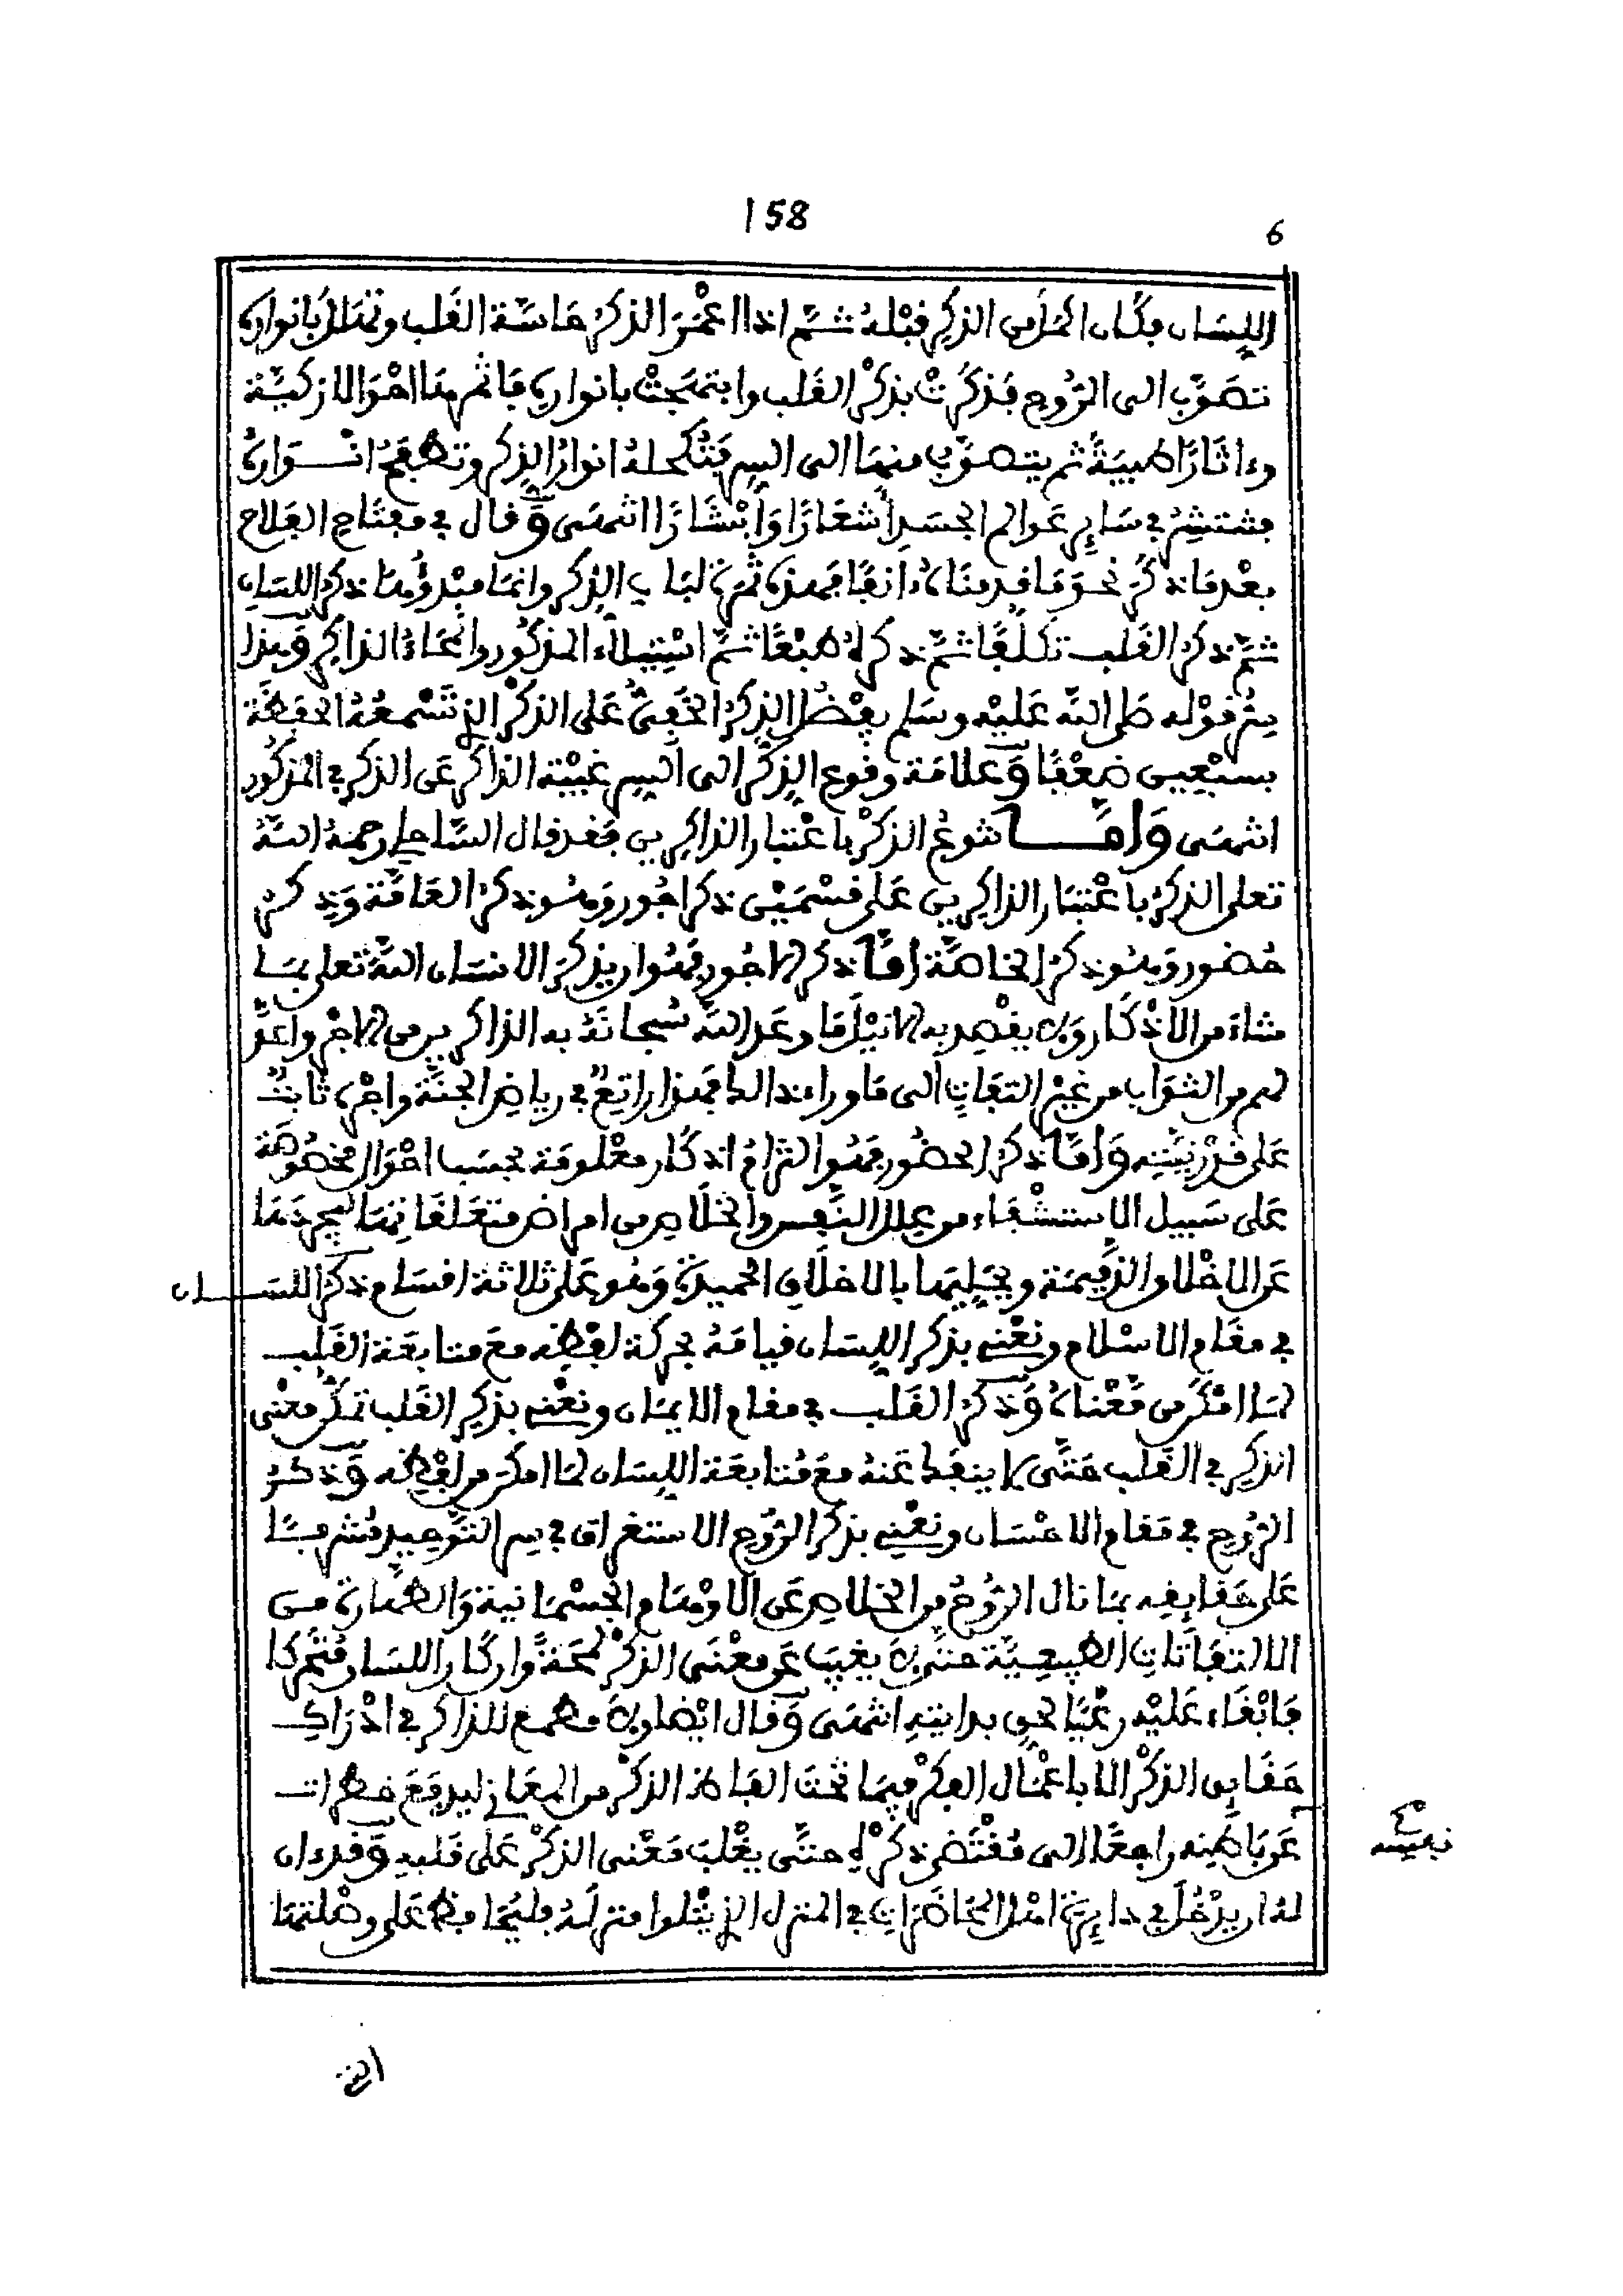 158
6
اللسان فكان أكمل من الذكر قبله ثم إذا أعمر الذكر حاسة القلب وتملأ بأنواره
تصوب إلى الروح فذكرت بذكر القلب وابتهجت بأنواره فأثمر هنا أحوالا زكية
وءاثارا طيبة ثم يتصوب منها إلى السر أنوار الذكر أنواره
في سائر عوالم الجسد إشعارا وانتشارا انتهى وقال في مفتاح الفلاح
بعد ما ذكر نحو ما قدمناه ءانفا فهذه ثمرة لباب الذكر وإنما مبدؤها ذكر اللسان
ثم ذكر القلب تكلفا ثم ذكره طبعا ثم استيلاء المذكور وانمحاء الذاكر وهذا
سر قوله صلى الله عليه وسلم يفضل الذكر الخفي على الذكر الذي تسمعه الحفظة
بسبعين ضعفا وعلامة وقوع الذكر إلى السر غيبة الذاكر عن الذكر في المذكور
انتهى وأما تنوع الذكر باعتبار الذاكرين فقد قال الساحلي رحمه الله
تعلى الذكر باعتبار الذاكرين على قسمين ذكر أجور وهو ذكر العامة وذكر
حضور وهو ذكر الخاصة أما ذكر الأجور فهو أن يذكر الإنسان الله تعلى بما
شاء من الأذكار ولا يقصد به إلا نيل ما وعد الله سبحانه به الذاكرين من الأجر وأعد
لهم من الثواب من غير التفات إلى ما وراء ذلك فهذا راتع في رياض الجنة وأجره ثابت
على قدر نيته وأما ذكر الحضور فهو التزام أذكار معلومة بحسب أحوال مخصوصة
على سبيل الاستشفاء من علل النفس والخلاص من أمراض متعلقاتها ليجردها
عن الأخلاق الذميمة ويحليها بالأخلاق الحميدة وهو على ثلاثة أقسام ذكر اللسان
في مقام الإسلام ونعني بذكر اللسان قيامه بحركة لفظه مع متابعة القلب
لما أمكن من معناه وذكر القلب في مقام الإيمان ونعني بذكر القلب تمكن معنى
الذكر في القلب حتى لا ينفك عنه مع متابعة اللسان لما أمكن من لفظه وذكر
الروح في مقام الإحسان ونعني بذكر الروح الاستغراق في سر التوحيد مشرفا
على حقائقه بما نال الروح من الخلاص عن الأوهام الجسمانية والطهارة من
الالتفاتات الطبيعية حتى لا يغيب عن معنى الذكر لمحة وإن كان اللسان متحركا
فإبقاء عليه رعيا لحق بدايته انتهى وقال أيضا ولا مطمع للذاكر في إدراك
حقائق الذكر إلا بإعمال الفكر فيما تحت ألفاظ الذكر من المعاني ليدفع خطرات
نفسه
عن باطنه راجعا إلى مقتضى ذكره حتى يغلب معنى الذكر على قلبه وقد ءان
له أن يدخل في دائرة أهل المحاضرات في المنزل الذي يتلوا منزله فليحافظ على